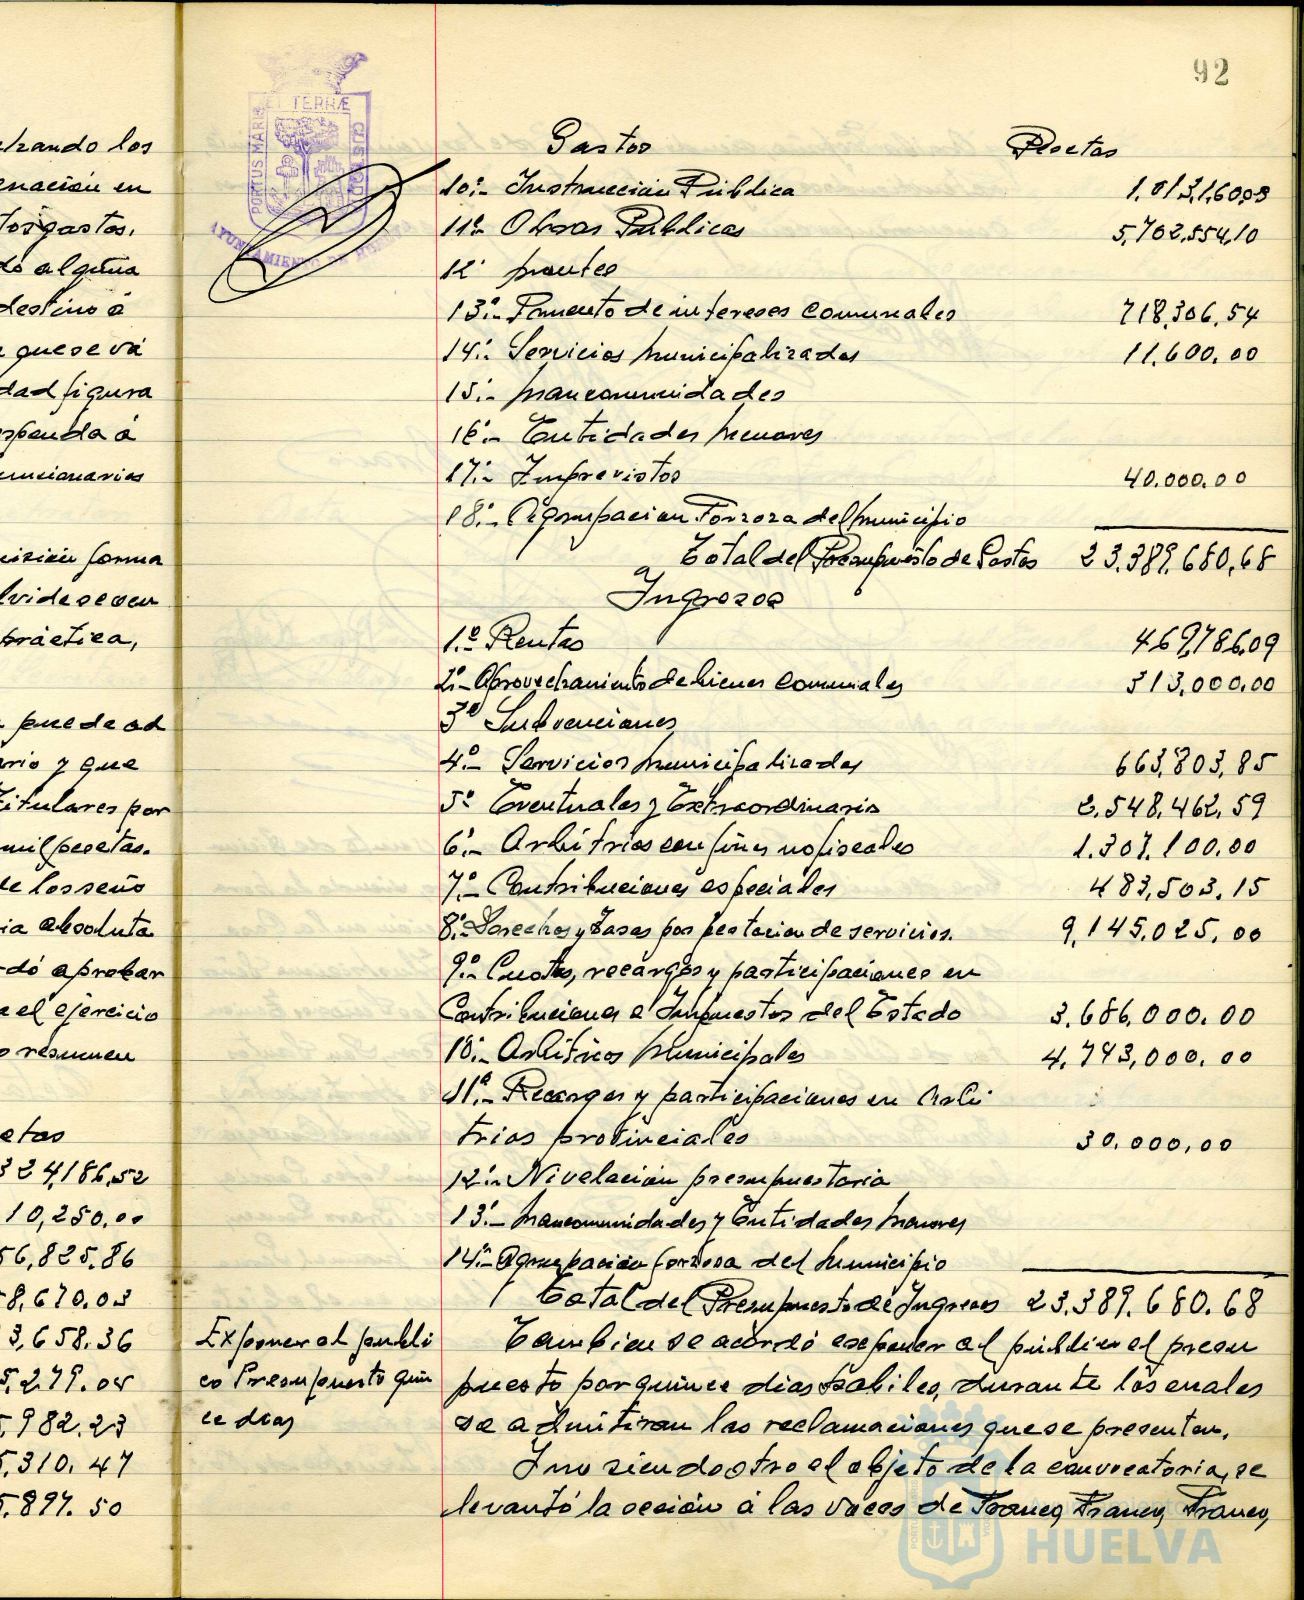 92
PORTUS MARIS ET TERRÆ CUSTOD
AYUNTAMIENTO DE HUELVA
Gastos Pesetas
10º.- Instrucción Pública
11º.- Obras Públicas 5,702,554,10
12º montes
13º.- Fomento de intereses comunales 718,306,54
14º.- Servicios municipalizados 11,600.00
15º.- mancomunidades
16º.- Entidades menores
17º.- Imprevistos 40.000.00
18º.- Agrupacion Forzoza del municipio
Total del Presupuesto de Gastos 23,389,680,68
Ingresos
1.º Rentas 469,786,09
2º.- Aprovechamiento de bienes comunales 313,000,00
3º Subvenciones
4º.- Servicios municipalizados 663,803,85
5º Eventuales y Extraordinario 2,548,462,59
6º.- Arbitrios con fines no fiscales 1.307,100,00
7º.- Contribuciones especiales 483,503,15
8º.- Derechos y Tasas por pestacion de servicios. 9,145,025,00
9º.- Cuotas, recargos y participaciones en
Contribuciones e Impuestos del Estado 3,686,000.00
10º.- Arbitrios Municipales 4,743,000.00
11º.- Recargos y participaciones en Arbi
trios provinciales 30,000,00
12º.- Nivelación presupuestaria
13º.- mancomunidades y Entidades menores
14º.- Agrupación forzosa del Municipio
Total del Presupuesto de Ingresos 23.389.680.68
Exponer al publi
co Presupuesto quin
ce dias
Tambien se acordó exponer al público el presu
puesto por quince dias habiles, durante los cuales
se admitiran las reclamaciones que se presenten.
Y no siendo otro el objeto de la convocatoria, se
levantó la seción á las voces de Franco, Franco, Franco,
hando los
enación en
tos gastos.
do alguna
destino á
que se vá
dad figura
sponda á
uncionarios
isión forma
lvide se en
práctica,
puede ad
ario y que
Titulares por
mil pesetas.
de los seño
ia absoluta
rdó aprobar
a el ejercicio
o resumen
etas
324,186,52
10,250.00
56,825.86
8,670.03
3,658.36
5,279.05
5,982.23
5,310.47
5.897.50
HUELVA